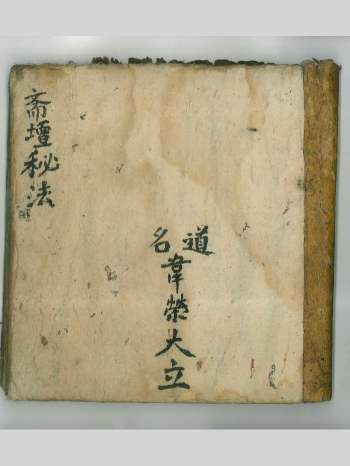 斋壇秘法
道名
韋榮大立